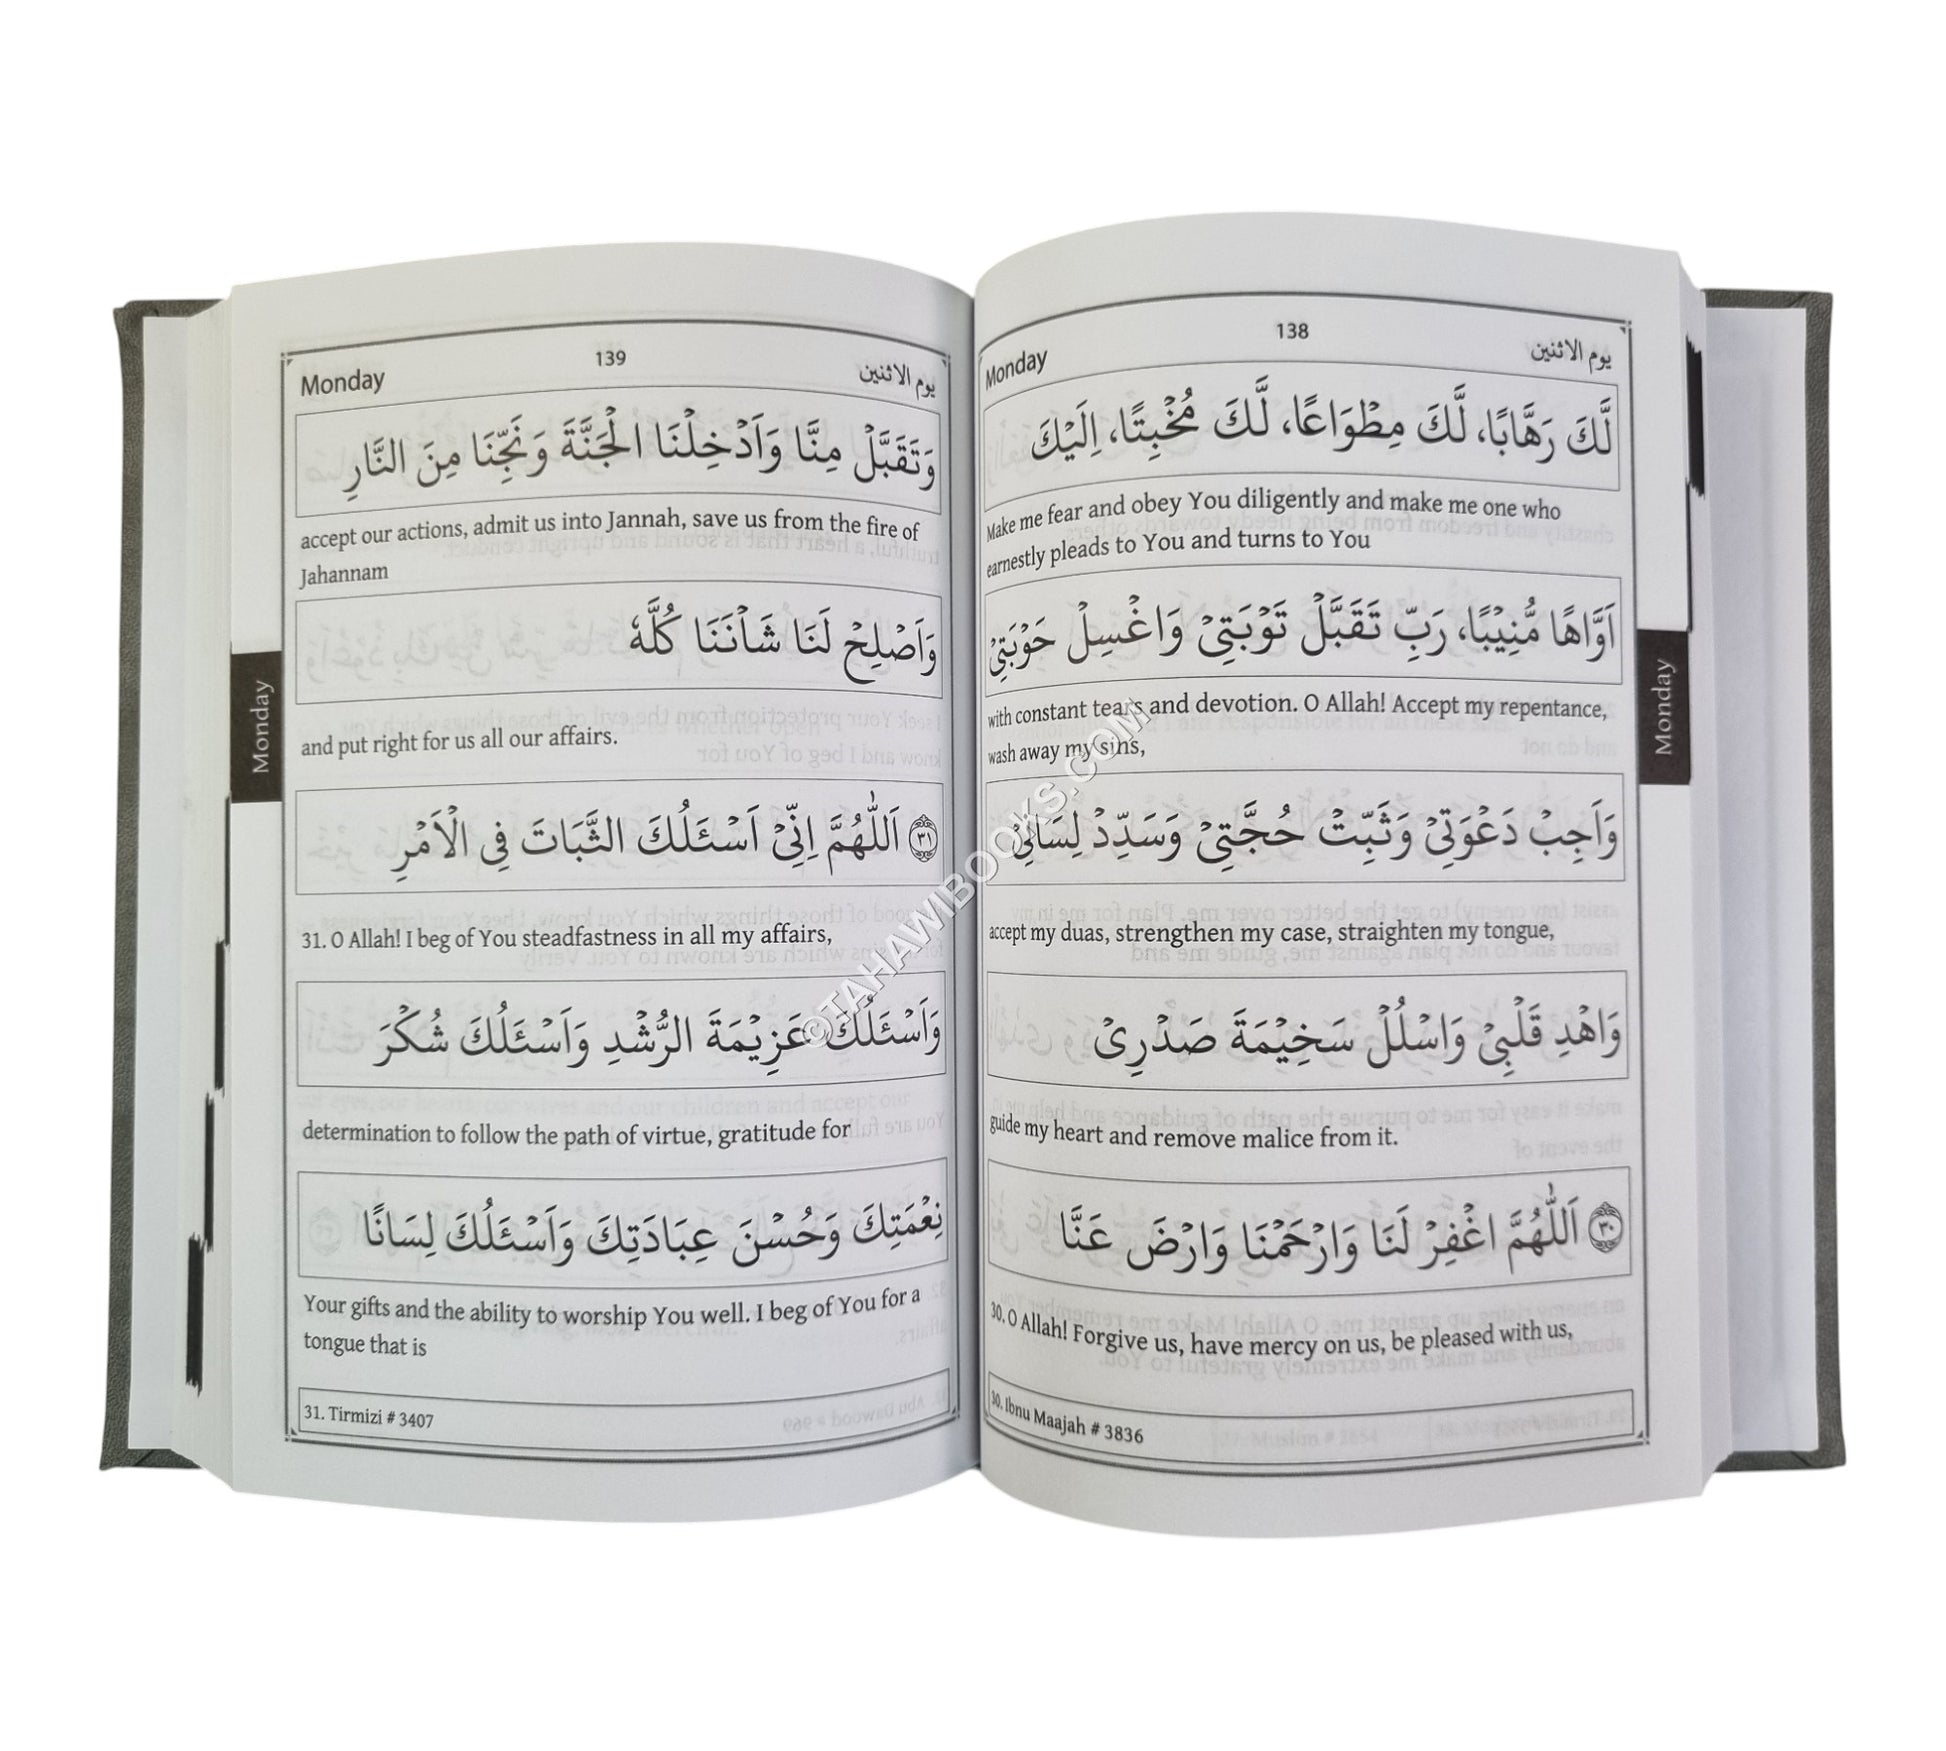 Monday
138
يوم الاثنين
لَّكَ رَهَّابًا، لَّكَ مِطْوَاعًا، لَّكَ مُخْبِتًا، اِلَيْكَ
Make me fear and obey You diligently and make me one who
earnestly pleads to You and turns to You
اَوَّاهًا مُّنِيْبًا، رَبِّ تَقَبَّلْ تَوْبَتِيْ وَاغْسِلْ حَوْبَتِيْ
with constant tears and devotion. O Allah! Accept my repentance,
wash away my sins,
وَاَجِبْ دَعْوَتِيْ وَثَبِّتْ حُجَّتِيْ وَسَدِّدْ لِسَانِيْ
accept my duas, strengthen my case, straighten my tongue,
وَاهْدِ قَلْبِيْ وَاسْلُلْ سَخِيْمَةَ صَدْرِيْ
guide my heart and remove malice from it.
٣٠ اَللّٰهُمَّ اغْفِرْ لَنَا وَارْحَمْنَا وَارْضَ عَنَّا
30. O Allah! Forgive us, have mercy on us, be pleased with us,
30. Ibnu Maajah # 3836
Monday
Monday
139
يوم الاثنين
وَتَقَبَّلْ مِنَّا وَاَدْخِلْنَا الْجَنَّةَ وَنَجِّنَا مِنَ النَّارِ
accept our actions, admit us into Jannah, save us from the fire of
Jahannam
وَاَصْلِحْ لَنَا شَاْنَنَا كُلَّهٗ
and put right for us all our affairs.
٣١ اَللّٰهُمَّ اِنِّيْ اَسْئَلُكَ الثَّبَاتَ فِي الْاَمْرِ
31. O Allah! I beg of You steadfastness in all my affairs,
وَاَسْئَلُكَ عَزِيْمَةَ الرُّشْدِ وَاَسْئَلُكَ شُكْرَ
determination to follow the path of virtue, gratitude for
نِعْمَتِكَ وَحُسْنَ عِبَادَتِكَ وَاَسْئَلُكَ لِسَانًا
Your gifts and the ability to worship You well. I beg of You for a
tongue that is
31. Tirmizi # 3407
Monday
©TAHAWIBOOKS.COM